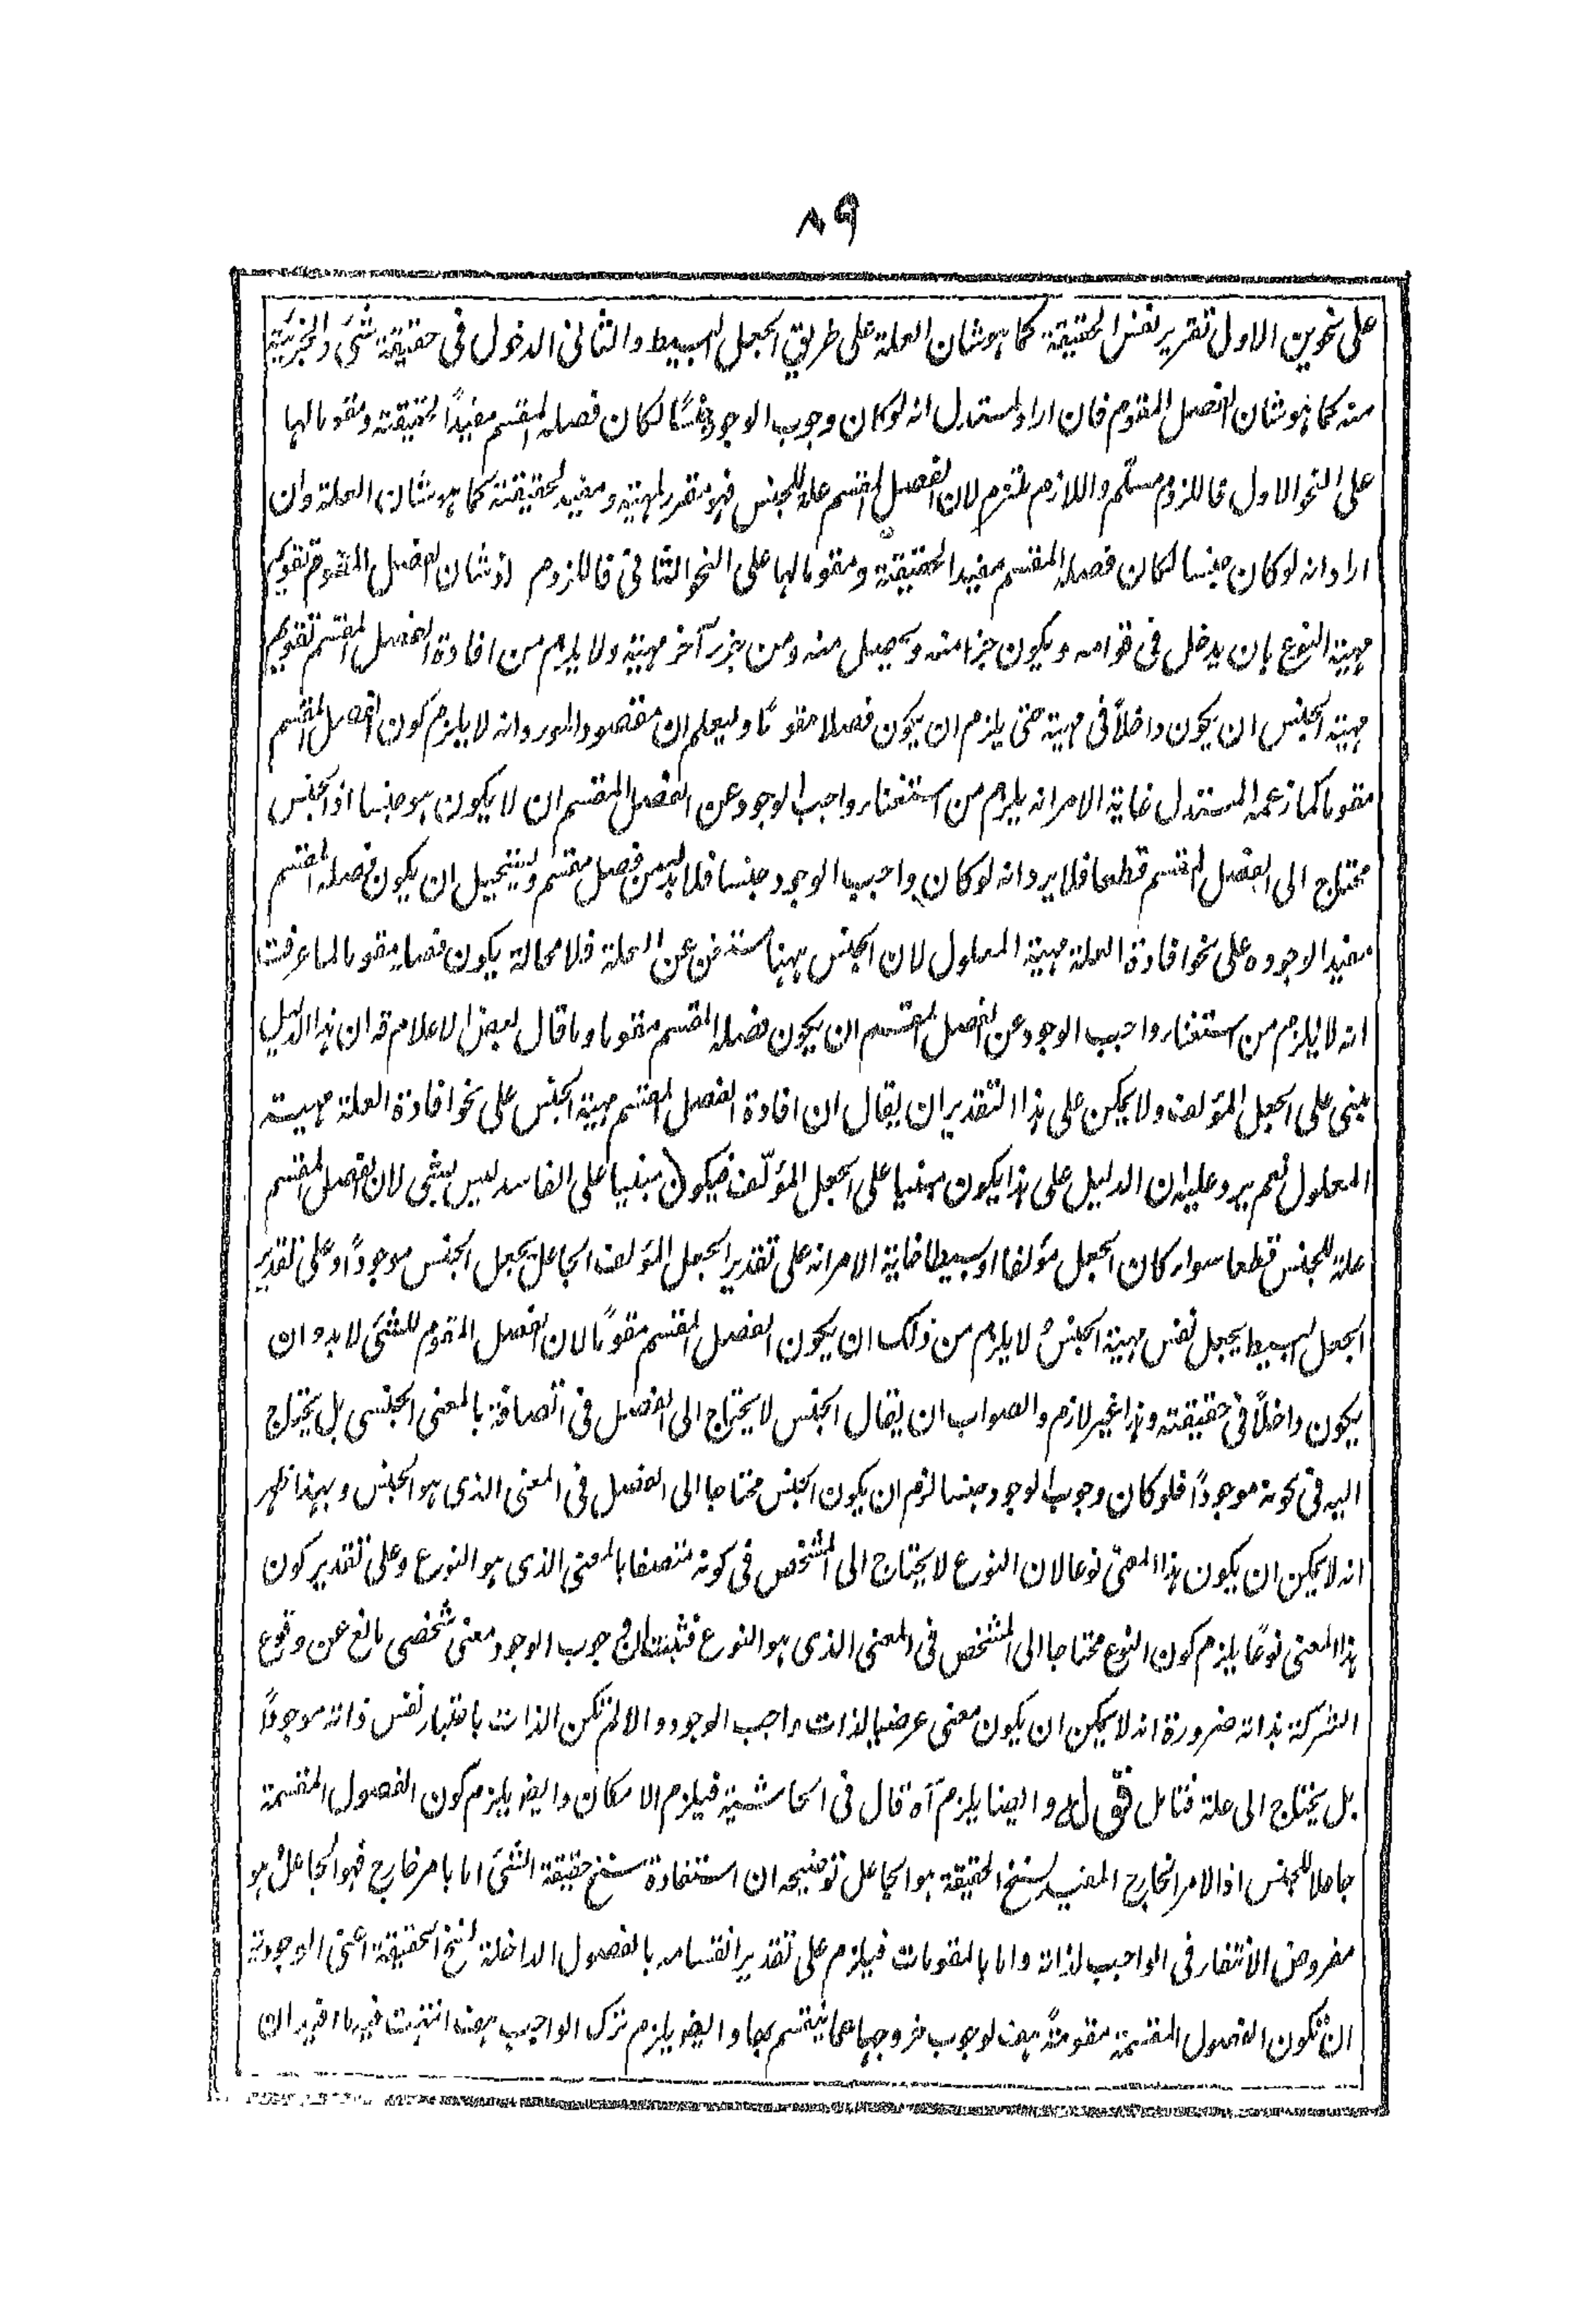 ٨٩
على نحوين الاول تقرير نفس الحقيقة كما هو شان العلة على طريق الجعل البسيط والثانى الدخول فى حقيقة شئ والجزئية
منه كما هو شان الفصل المقوم فان اراد المستدل انه لو كان وجوب الوجود جنسًا لكان فصله المقسم مفيدًا لحقيقته ومقوما لها
على النحو الاول فاللزوم مسلّم واللازم ملتزم لان الفصل المقسم علة للجنس فهو مقرر لمهيته ومفيد لحقيقته كما هو شان العلة وان
اراد انه لو كان جنسا لكان فصله المقسم مفيدا لحقيقته ومقوما لها على النحو الثانى فاللزوم اذ شان الفصل المقوم تقويم
مهية النوع بان يدخل فى قوامه ويكون جزءا منه ويحصل منه ومن جزء آخر مهيته ولا يلزم من افادة الفصل المقسم تقويم
مهية الجنس ان يكون داخلاً فى مهيته حتى يلزم ان يكون فصلا مقومًا وليعلم ان مقصود المورد انه لا يلزم كون الفصل المقسم
مقوما كما زعمه المستدل غاية الامر انه يلزم من استغناء واجب الوجود عن الفصل المقسم ان لا يكون هو جنسا اذ الجنس
محتاج الى الفصل المقسم قطعا فلا يرد انه لو كان واجب الوجود جنسا فلا بد له من فصل مقسم ويستحيل ان يكون فصله المقسم
مفيد الوجوده على نحو افادة العلة مهية المعلول لان الجنس ههنا مستغن عن العلة فلا محالة يكون فصله مقوما لما عرفت
انه لا يلزم من استغناء واجب الوجود عن الفصل المقسم ان يكون فصله المقسم مقوما وما قال بعض الاعلام قد ان هذا الدليل
مبنى على الجعل المؤلف ولا يمكن على هذا التقدير ان يقال ان افادة الفصل المقسم مهية الجنس على نحو افادة العلة مهيت
المعلول نعم يرد عليه ان الدليل على هذا يكون مبنيا على الجعل المؤلّف فيكون مبنيا على الفاسد ليس بشئ لان الفصل المقسم
علة للجنس قطعا سواء كان الجعل مؤلفا او بسيطا غاية الامر انه على تقدير الجعل المؤلف الجاعل يجعل الجنس موجودًا وعلى تقدير
الجعل البسيط يجعل نفس مهية الجنس ولا يلزم من ذلك ان يكون الفصل المقسم مقومًا لان الفصل المقوم للشئ لا بد وان
يكون داخلاً فى حقيقته وهذا غير لازم والصواب ان يقال الجنس لا يحتاج الى الفصل فى اتصافه بالمعنى الجنسى بل يحتاج
اليه فى كونه موجودًا فلو كان وجوب الوجود جنسا لزم ان يكون الجنس محتاجا الى الفصل فى المعنى الذى هو الجنس وبهذا ظهر
انه لا يمكن ان يكون هذا المعنى نوعا لان النوع لا يحتاج الى المشخص فى كونه متصفا بالمعنى الذى هو النوع وعلى تقدير كون
هذا المعنى نوعًا يلزم كون النوع محتاجا الى المشخص فى المعنى الذى هو النوع فثبت ان وجوب الوجود معنى شخصى مانع عن وقوع
الشركة بذاته ضرورة انه لا يمكن ان يكون معنى عرضيا لذات واجب الوجود والا لم تكن الذات باعتبار نفس ذاته موجودًا
بل يحتاج الى علة فتامل قوله وايضا يلزم آه قال فى الحاشية فيلزم الامكان وايضا يلزم كون الفصول المقسمة
جاعلا للجنس اذ الامر الخارج المفيد لسنخ الحقيقة هو الجاعل توضيحه ان استفادة سنخ حقيقة الشئ اما بامر خارج فهو الجاعل وهو
مفروض الانتفاء فى الواجب لذاته واما بالمقومات فيلزم على تقدير انقسامه بالفصول الداخلة لسنخ الحقيقة اعنى الوجودية
ان تكون الفصول المقسمة مقومة هف لوجوب خروجها عما ينقسم بها وايضا يلزم تركب الواجب هف انتهت فيه ما افيد ان